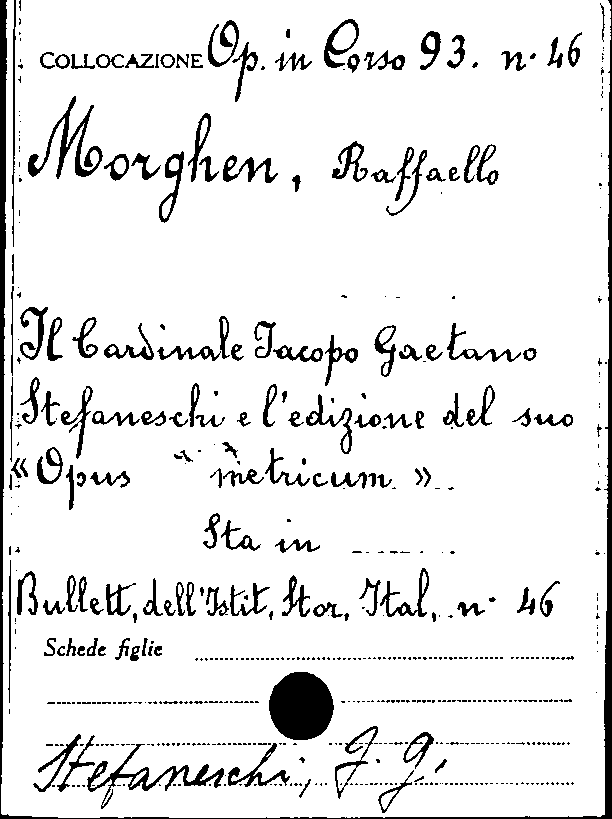 COLLOCAZIONE Op. in Corso 93. n. 46
Morghen, Raffaello
Il Cardinale Iacopo Gaetano
Stefaneschi e l'edizione del suo
«Opus metricum»
Sta in
Bullett, dell'Istit, Stor, Ital, n. 46
Schede figlie
Stefaneschi, J. G.